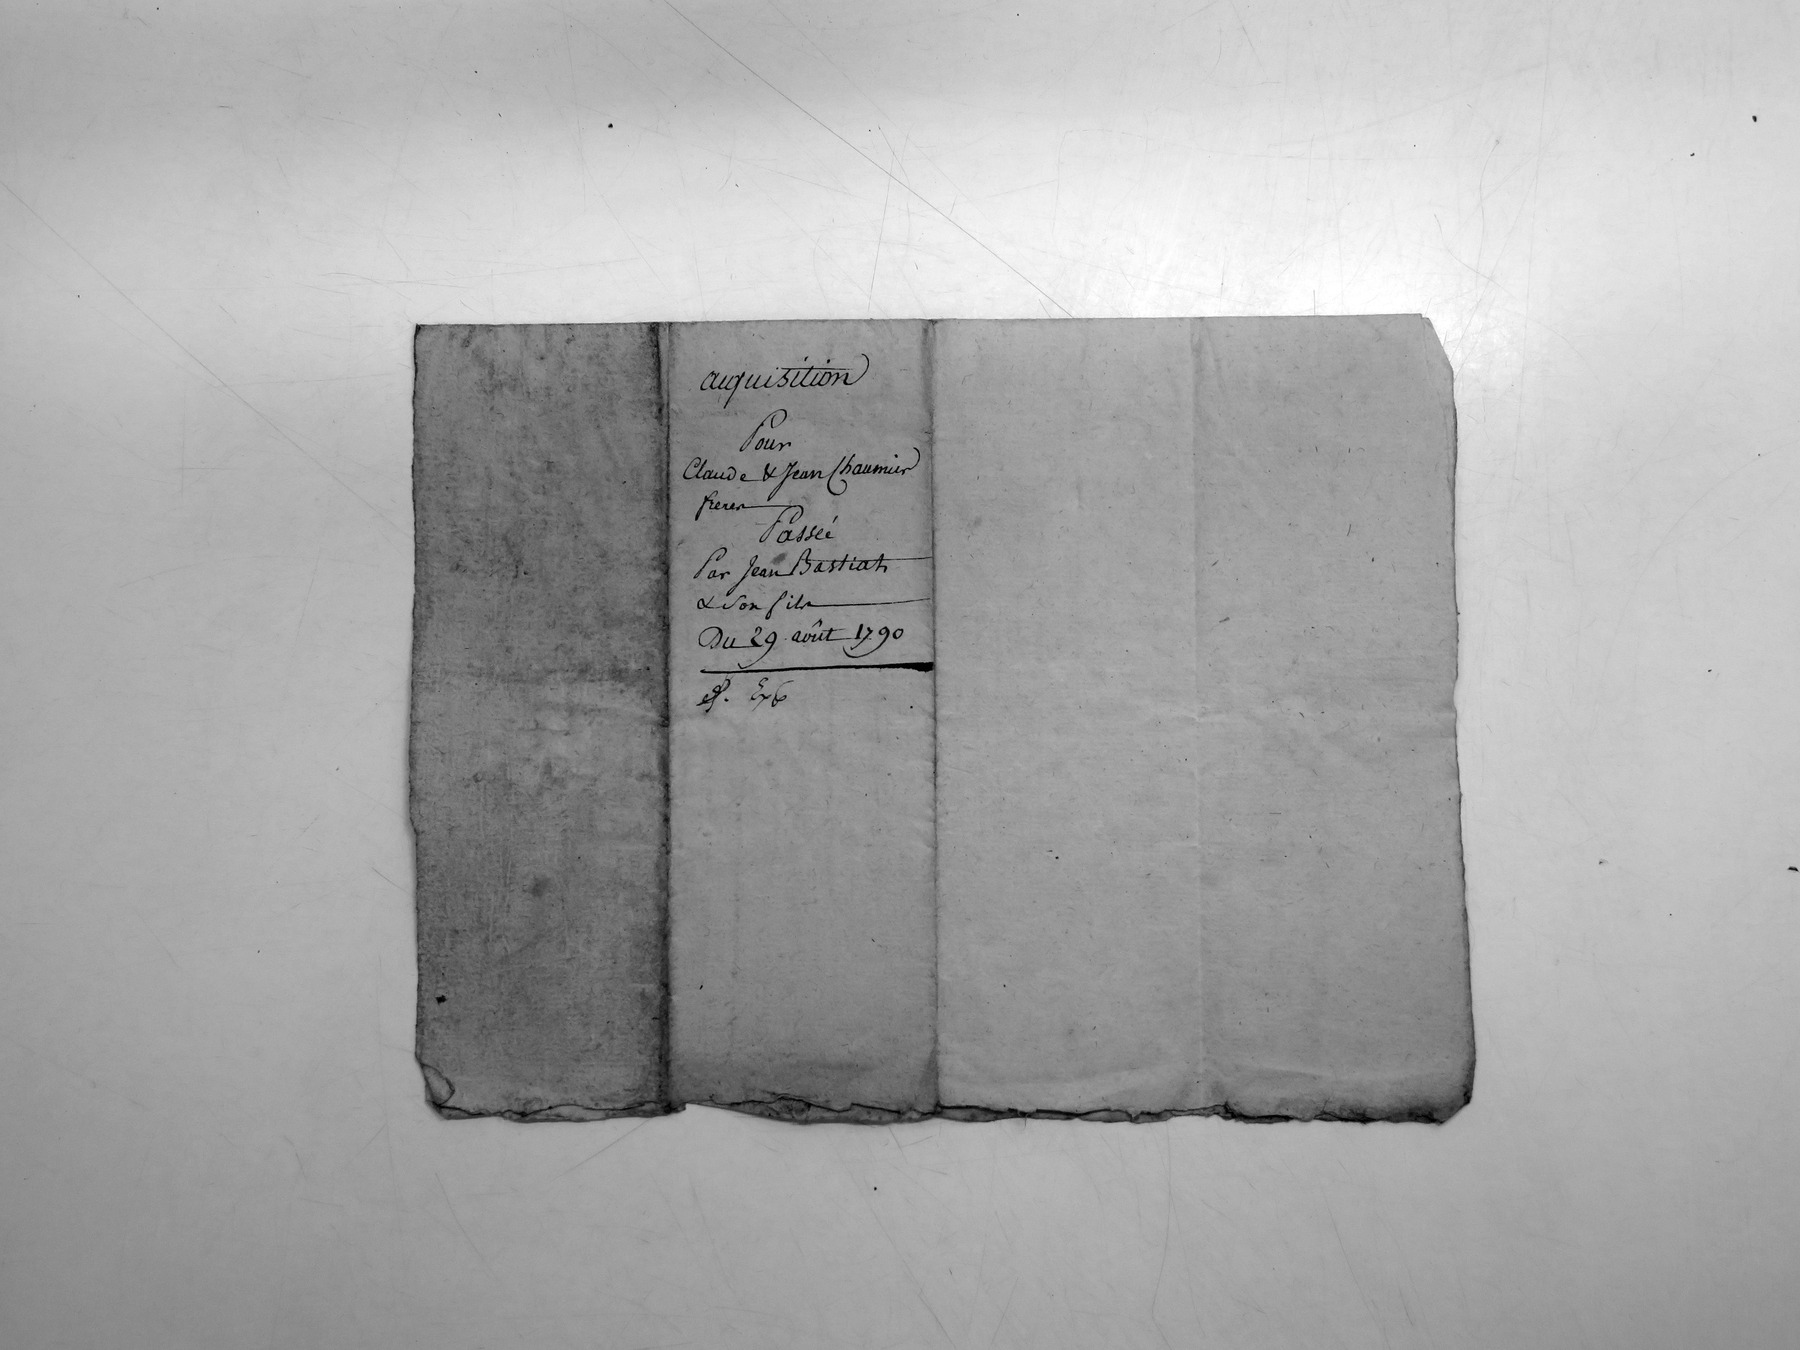 acquisition
Pour
Claude & Jean Chaumier
freres
Passée
Par Jean Bastiat
& Son fils
Du 29 août 1790
Exp